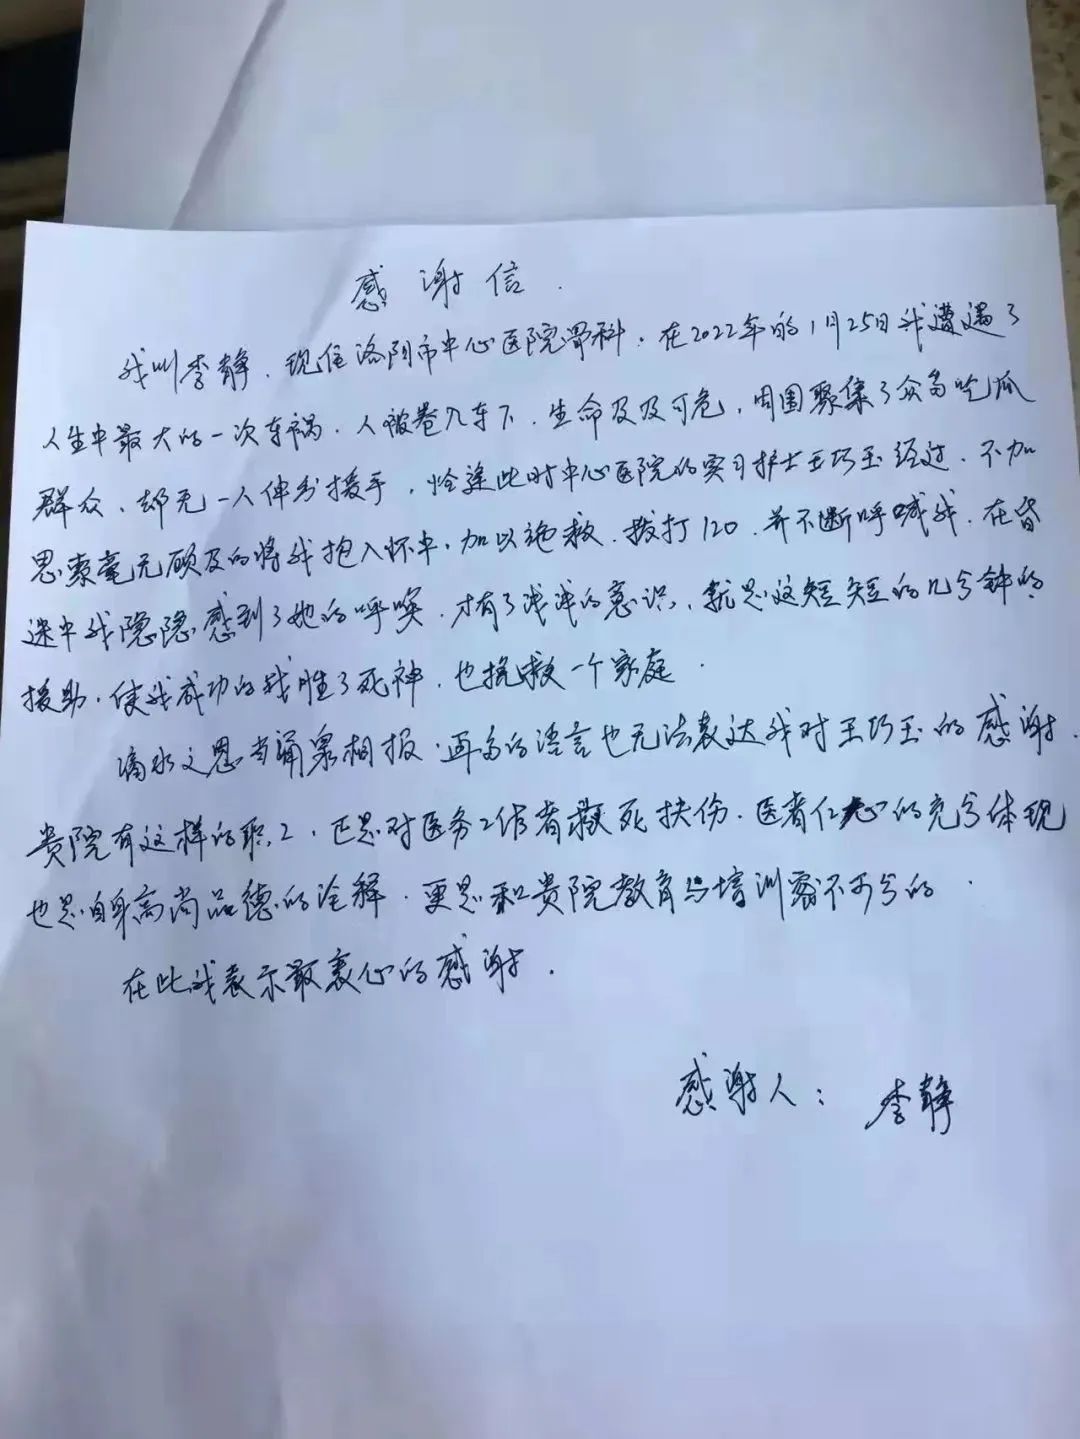 感谢信.
我叫李静.现住洛阳市中心医院骨科.在2022年的1月25日我遭遇了
人生中最大的一次车祸.人被卷入车下.生命及及可危,周围聚集了众多吃瓜
群众、却无一人伸出援手,恰逢此时中心医院的实习护士王巧玉经过.不加
思索毫无顾及的将我抱入怀中.加以施救.拨打120.并不断呼喊我.在昏
迷中我隐隐感到了她的呼唤.才有了浅浅的意识、就是这短短的几分钟的
援助.使我成功的战胜了死神.也挽救一个家庭.
滴水之恩当涌泉相报.再多的语言也无法表达我对王巧玉的感谢.
贵院有这样的职工.正是对医务工作者救死扶伤.医者仁心的充分体现
也是自身高尚品德的诠释.更是和贵院教育与培训密不可分的.
在此我表示最衷心的感谢.
感谢人:李静